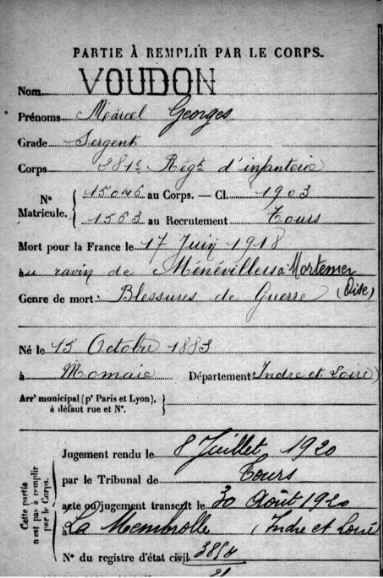 PARTIE À REMPLIR PAR LE CORPS.
Nom VOUDON
Prénoms Marcel Georges
Grade Sergent
Corps 281e Régt d'infanterie
N° Matricule. { 15046 au Corps. — Cl. 1903
1563 au Recrutement Tours
Mort pour la France le 17 Juin 1918
au ravin de Ménévillers à Mortemer
Genre de mort Blessures de Guerre (Oise)
Né le 15 Octobre 1883
à Département Indre et Loire
Arrt municipal (pr Paris et Lyon), à défaut rue et N°.
Cette partie n'est pas à remplir par le Corps.
Jugement rendu le 8 Juillet 1920
par le Tribunal de Tours
acte ou jugement transcrit le 30 Août 1920
à La Membrolle (Indre et Loire
N° du registre d'état civil